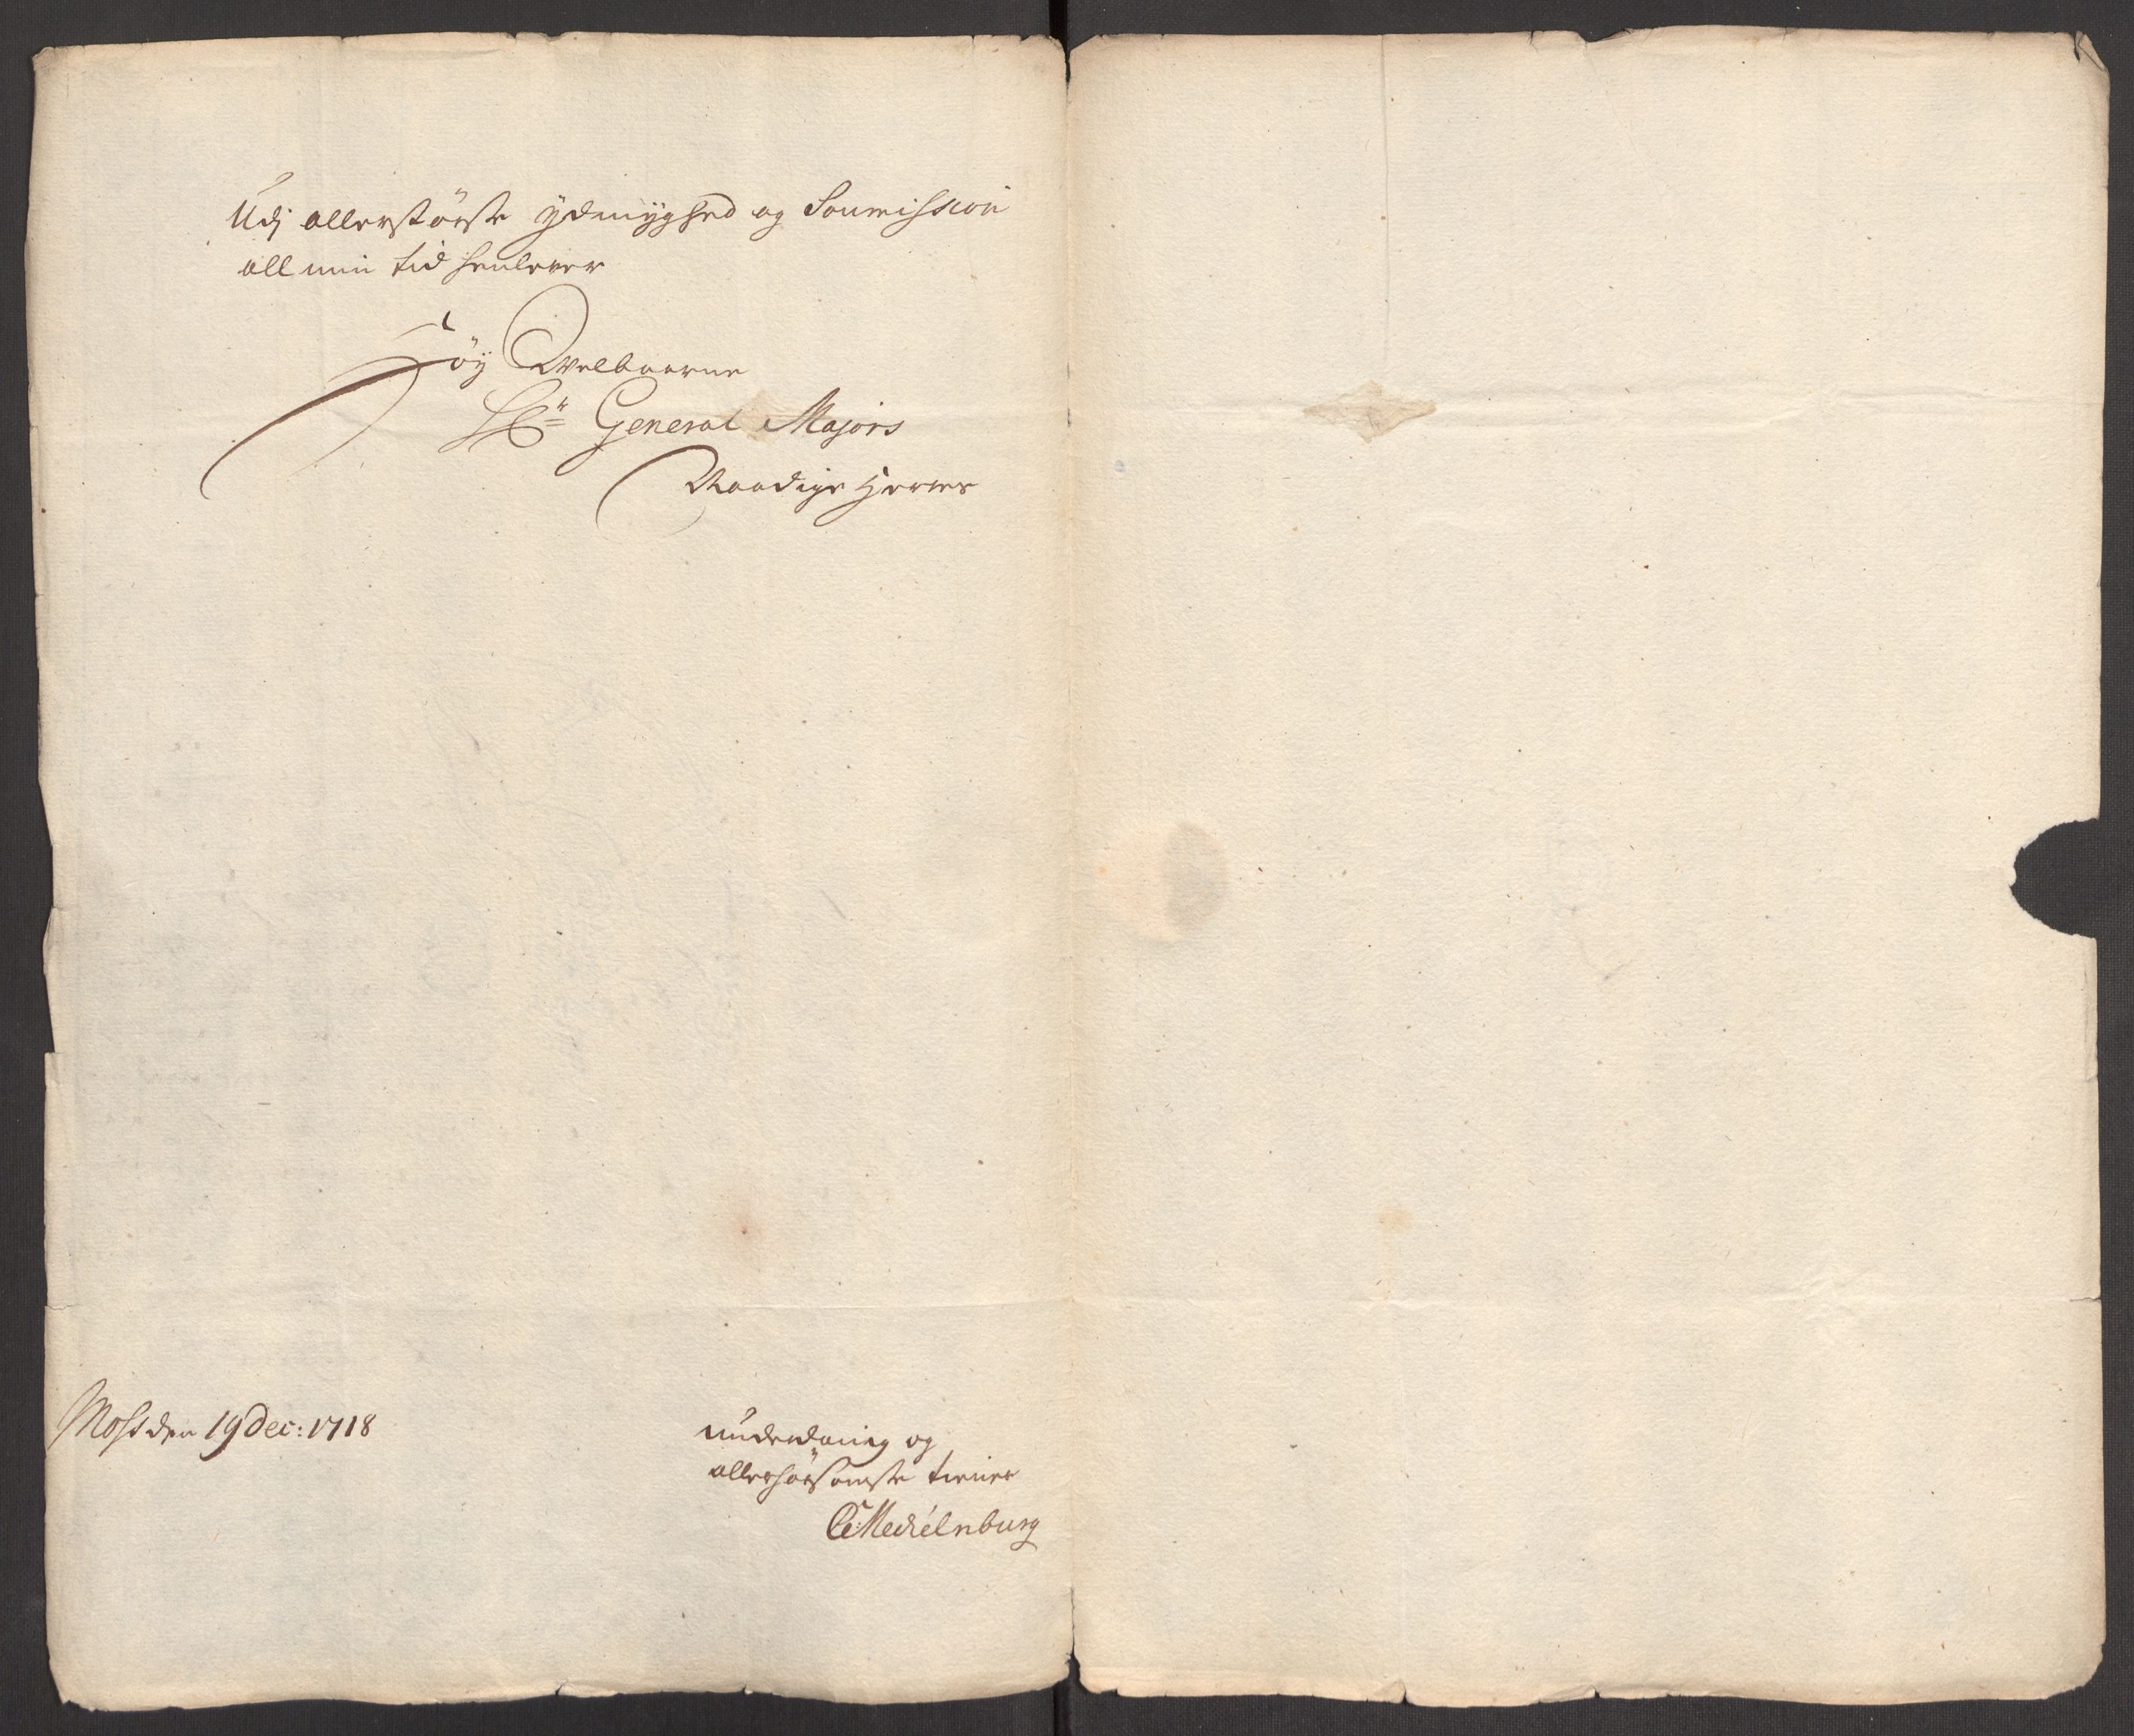 Udj allerstörste ydmyghed og Soumission
all min tid henlever
Höy Welbaarne
Hr General Majors
Naadige Herres
Moss den 19 Dec: 1718
underdanig og
allerhörsomste tiener
C: Mechelnburg